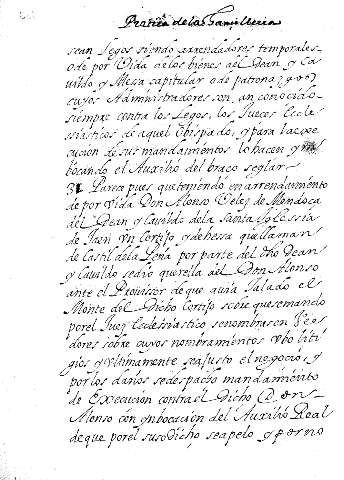 Practica de la
sean Legos siendo arrendadores temporales
o de por Vida de los bienes del Dean y Ca-
vildo, y Mesa capitular o de patronazgos
cuyos Administradores son, an conocido
siempre contra los Legos, los Jueces Ecle-
siasticos de aquel Obispado, y para la exe-
cucion de sus mandamientos lo hacen ym-
bocando el Auxilio del braço seglar
31 Parece pues que teniendo en arrendamiento
de por vida Don Alonso Velez de Mendoça
del Dean y Cavildo de la Santa Iglessia
de Jaen Un Cortijo y dehessa que llaman
de Castil de la Peña por parte del dho Dean
y Cavildo se dio querella del Don Alonso
ante el Provisor de que avia Talado el
Monte del Dicho Cortijo sobre que semando
por el Juez Eclesiastico, se nombrasen Vee-
dores sobre cuyos nombramientos ubo liti-
gios y ultimamente se ajusto el negocio, y
por los daños se despacho mandamiento
de Execucion contra el Dicho Don
Alonso con ynbocacion del Auxilio Real
de que por el suso dicho, se apelo, y por no